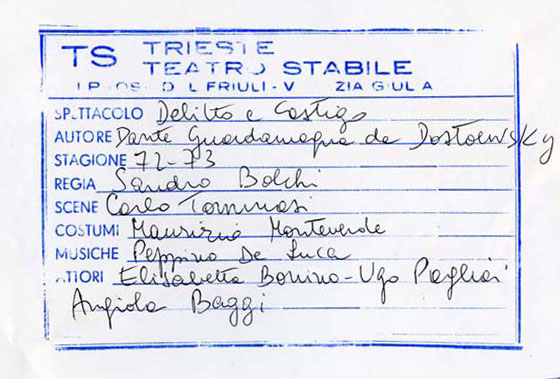 TS TRIESTE
TEATRO STABILE
FRIULI-V ZIA GIULIA
SPETTACOLO Delitto e Castigo
AUTORE Dante Guardamagna da Dostoewsky
STAGIONE 72-73
REGIA Sandro Bolchi
SCENE Carlo Tommasi
COSTUMI Maurizio Monteverde
MUSICHE Peppino De Luca
ATTORI Elisabetta Bonino - Ugo Pagliai
Angiola Baggi